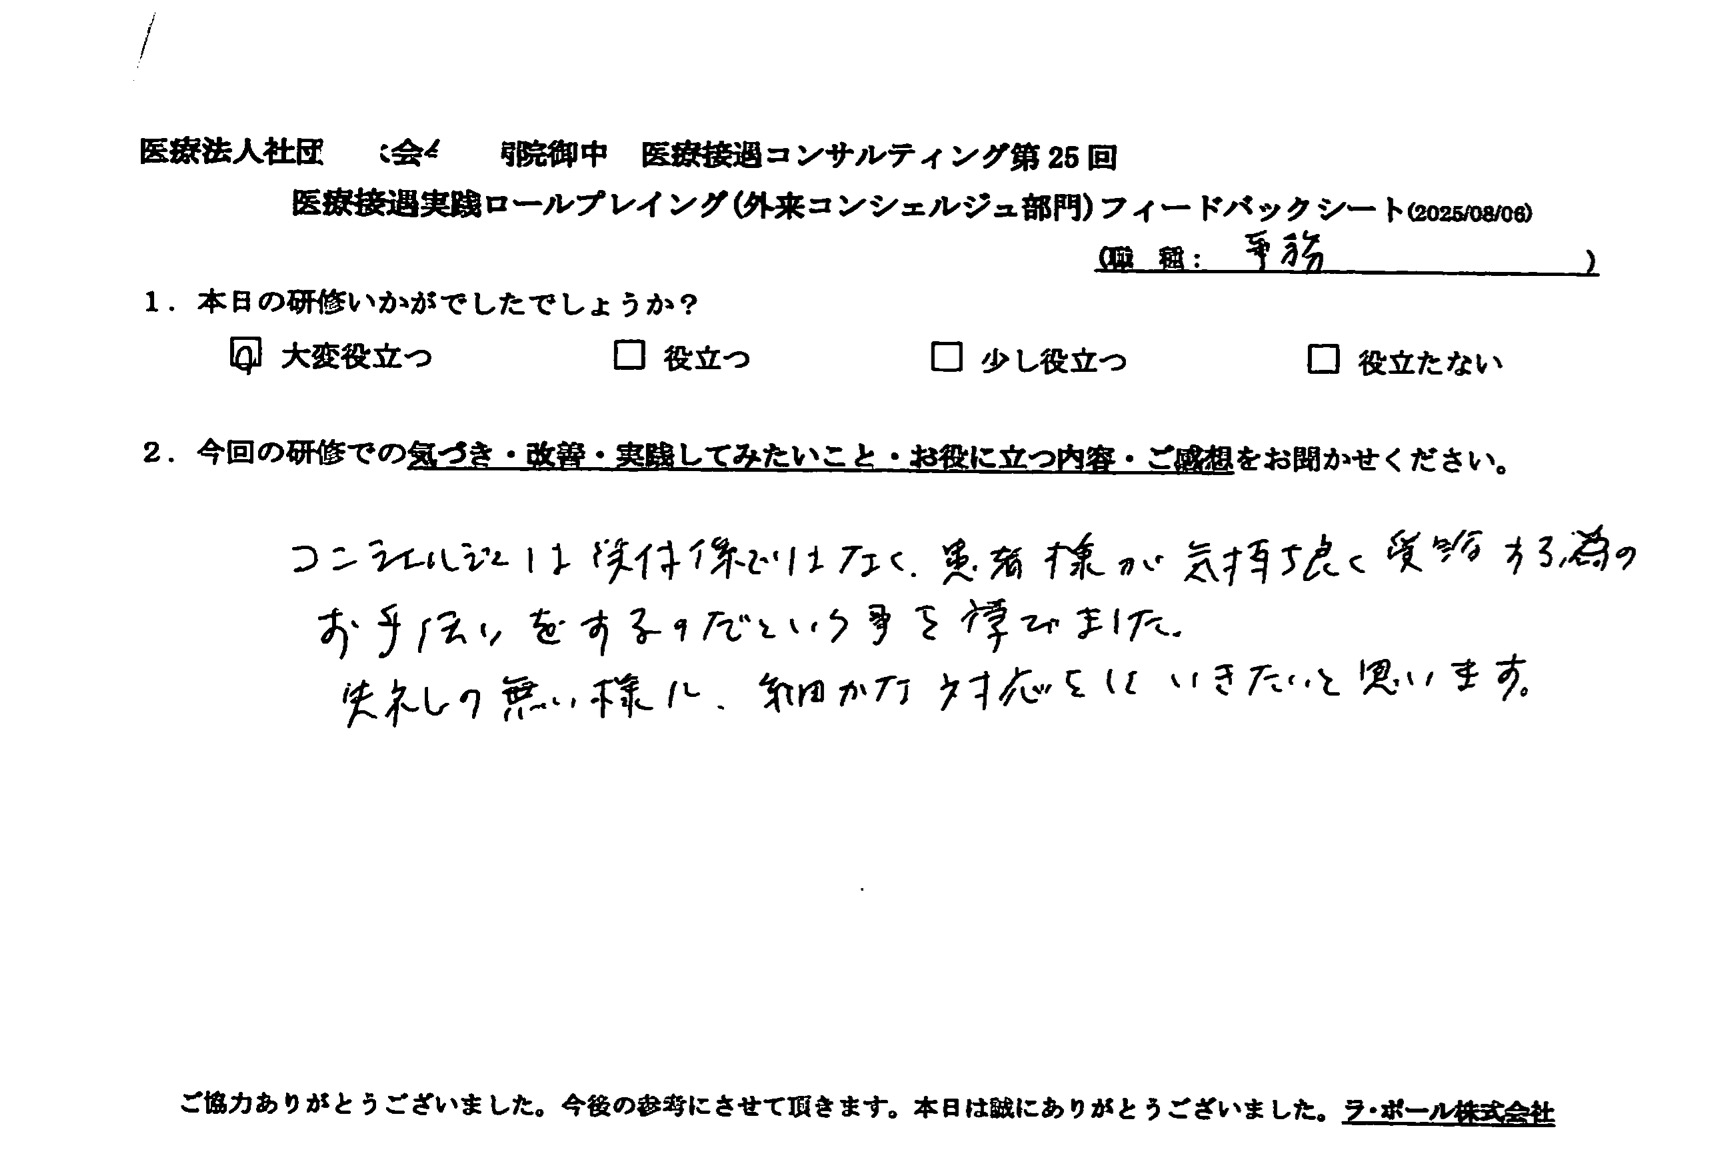 医療法人社団 会 院御中 医療接遇コンサルティング第 25 回
医療接遇実践ロールプレイング(外来コンシェルジュ部門)フィードバックシート(2025/08/06)
(職 種: 事務 )
1. 本日の研修いかがでしたでしょうか?
大変役立つ □ 役立つ □ 少し役立つ □ 役立たない
2. 今回の研修での気づき・改善・実践してみたいこと・お役に立つ内容・ご感想をお聞かせください。
コンシェルジュは受付係ではなく、患者様が気持ち良く受診する為の
お手伝いをするのだという事を学びました。
失礼の無い様に、細かな対応をしていきたいと思います。
ご協力ありがとうございました。今後の参考にさせて頂きます。本日は誠にありがとうございました。ラ・ポール株式会社